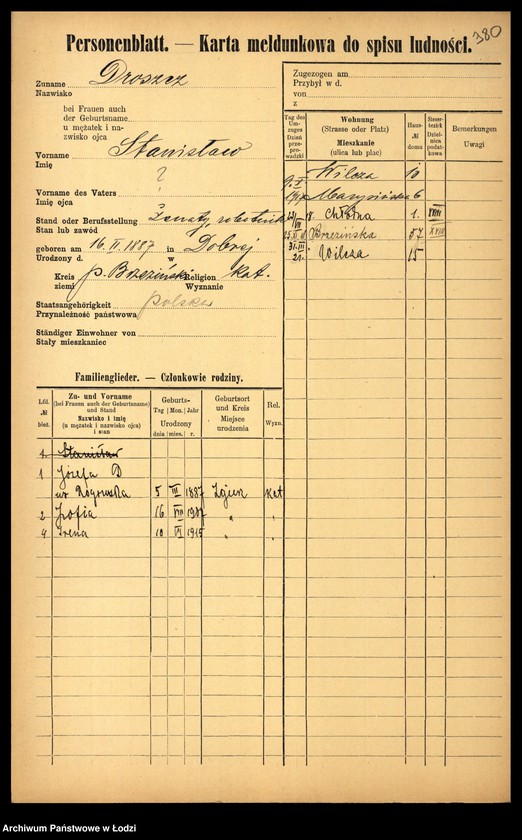 380
Personenblatt. — Karta meldunkowa do spisu ludności.
Zuname Droszcz
Nazwisko
bei Frauen auch
der Geburtsname
u mężatek i na-
zwisko ojca
Vorname Stanisław
Imię
?
Vorname des Vaters
Imię ojca
Stand oder Berufsstellung Żonaty, robotnik
Stan lub zawód
geboren am 16. II. 1887 in Dobrej
Urodzony d. w
Kreis p. Brzeziński Religion kat.
ziemi Wyznanie
Staatsangehörigkeit polska
Przynależność państwowa
Ständiger Einwohner von
Stały mieszkaniec
Zugezogen am
Przybył w d.
von
z
Tag des Um-zuges Dzień prze-prowadzki
Wohnung
(Strasse oder Platz)
Mieszkanie
(ulica lub plac)
Haus-
№
domu
Steuer-bezirk Dzielnica podatkowa
Bemerkungen
Uwagi
Wilcza 10
Marysińska 6
Chłodna 1. XVIII
Brzezińska 57 XVIII
31.III 21. Wilcza 15
Familienglieder. — Członkowie rodziny.
Lfd.
№
bież.
Zu- und Vorname
(bei Frauen auch der Geburtsname)
und Stand
Nazwisko i imię
(u mężatek i nazwisko ojca)
i stan
Geburts-
Tag Mon. Jahr
Urodzony
dnia mies. r.
Geburtsort
und Kreis
Miejsce
urodzenia
Rel.
Wyzn.
1 Stanisław
1 Józefa D
ur. Rogowska 5 III 1887 Zgierz kat
2 Zofia 16 VIII 1907 "
4 Irena 10 VI 1915 "
Archiwum Państwowe w Łodzi